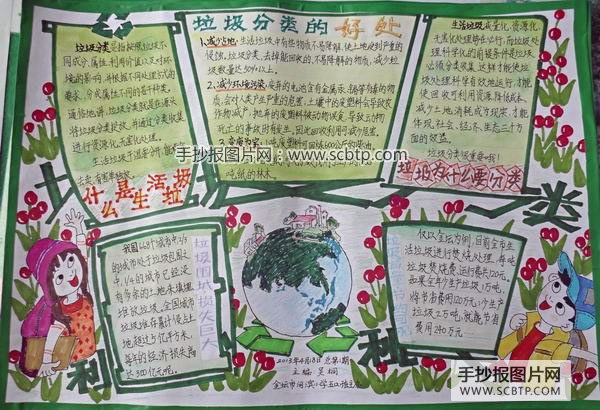 垃圾分类的好处
垃圾分类是指按照垃圾不
同成分、属性、利用价值以及对环
境的影响，并根据不同处理方式的
要求，分成属性不同的若干种类。
通俗地讲，垃圾分类就是在源头
将垃圾分类投放，并通过分类收集
进行资源化、无害化处理。
什么是生活垃圾
1、减少占地：生活垃圾中有些物质不易降解，使土地受到严重的
侵蚀。垃圾分类，去掉能回收的、不易降解的物品，减少垃
圾数量达50%以上。
2、减少环境污染：废弃的电池含有金属汞、镉等有毒的物
质，会对人类产生严重的危害；土壤中的废塑料会导致农
作物减产；抛弃的废塑料被动物误食，导致动物
死亡的事故时有发生。因此回收利用可减少危害。
3、变废为宝：
吨纸的林木。
生活垃圾减量化、资源化、
无害化处理势在必行，而垃圾处
理科学化的前提条件是垃圾
必须分类收集，这样才能使垃
圾处理科学有效地运行，才能
使回收可利用资源、降低成本、
减少土地消耗成为现实，才能
体现社会、经济、生态三个方
面的效益。
垃圾分类很重要哦！
垃圾为什么要分类
手抄报图片网：www.scbtp.com
我国668个城市中，2/3
的城市处于垃圾包围之
中，1/4的城市已经没
有多余的土地来填埋
堆放垃圾。全国城市
垃圾堆存累计侵占土
地超过5亿平方米，
每年的经济损失高
达300亿元呢。
垃圾围城损失巨大
仅以金坛为例，目前全市生
活垃圾进行焚烧处理，每吨
垃圾焚烧费、运行费共120元。
如果全年少产生垃圾1万吨，
将节省费用120万元；少产生
垃圾2万吨，就能节省
费用240万元……
2013年4月18日 总第1期
主编 吴桐
手抄报图片网
WWW.SCBTP.COM